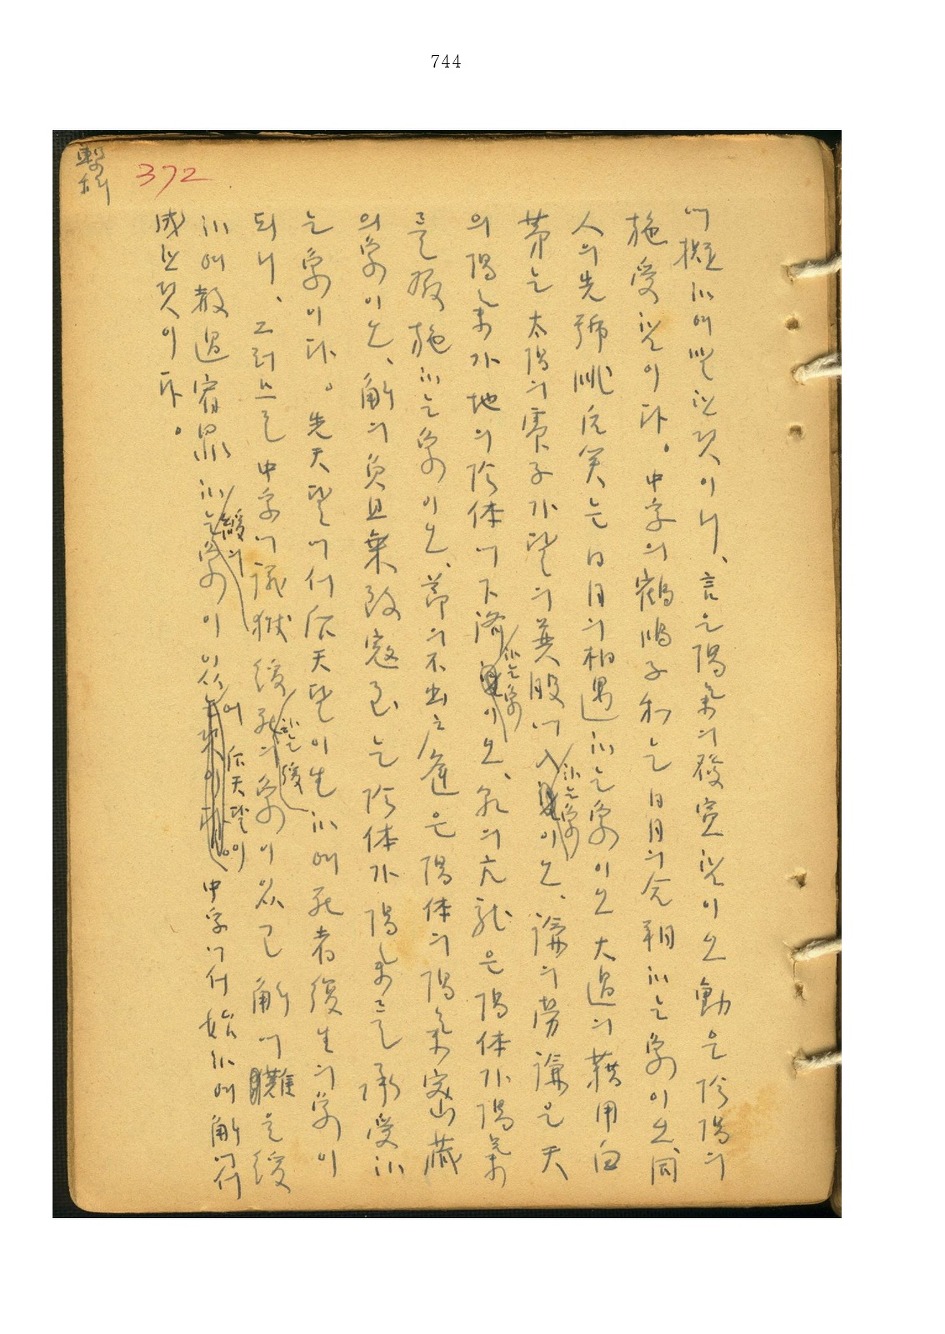 744
372
에 擬하여 말한 것이니, 言은 陽氣의 發宣함이오 動은 陰陽의
施受함이다. 中孚의 鶴鳴子和는 日月의 合朔하는 象이오 同
人의 先號咷后笑는 日月의 相遇하는 象이오 大過의 藉用白
茅는 太陽의 實子가 달의 巽股에 入하는 象이오, 謙의 勞謙은 天
의 陽氣가 地의 陰体에 下濟하는 象이오, 乾의 亢龍은 陽体가 陽氣
를 發施하는 象이오, 節의 不出戶庭은 陽体의 陽氣 密藏
의 象이오, 解의 負且乘致寇至는 陰体가 陽氣를 承受하
는 象이다. 先天달에서 后天달이 生하여 死者復生의 象이
되니, 그러므로 中孚에 議獄緩死하는 緩의 象이 있고 解에 難을 緩
하여 赦過宥罪하는 緩의 象이 있어 后天달이 中孚에서 始하여 解에서
成한 것이다.